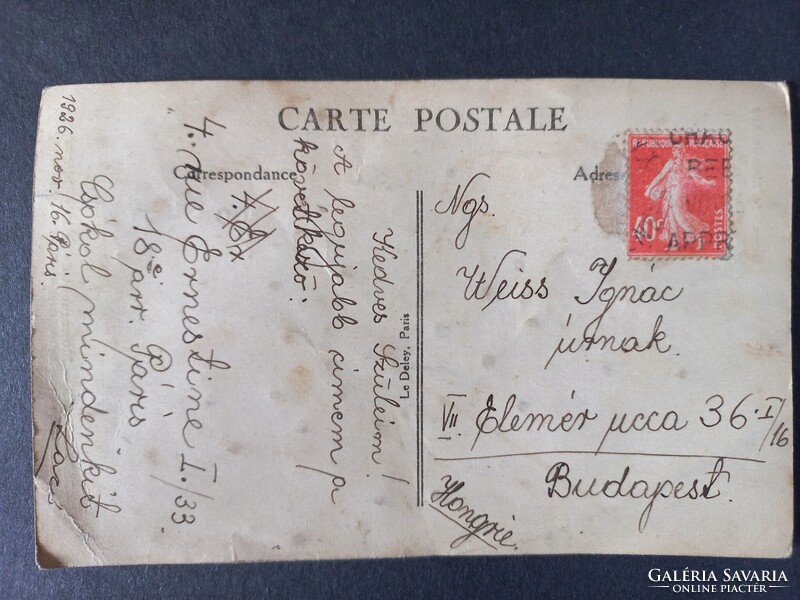 CARTE POSTALE
Correspondance
Adres
Kedves Szüleim!
A legujabb cimem a
következő:
4. rue Ernestine I./33
18e arr. Páris
Csókol mindenkit
Laci
1926. nov. 16. Páris.
Le Deley, Paris
REPUBLIQUE FRANÇAISE
40c
POSTES
Ngs.
Weiss Ignác
úrnak.
VII. Elemér ucca 36. I/16
Budapest.
Hongrie.
GALÉRIA SAVARIA
ONLINE PIACTÉR